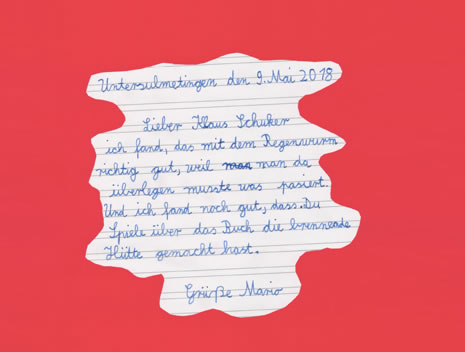 Untersulmetingen den 9. Mai 2018
Lieber Klaus Schuker
ich fand, das mit dem Regenwurm
richtig gut, weil man da
überlegen musste was pasiert.
Und ich fand noch gut, dass Du
Spiele über das Buch die brennende
Hütte gemacht hast.
Grüße Mario